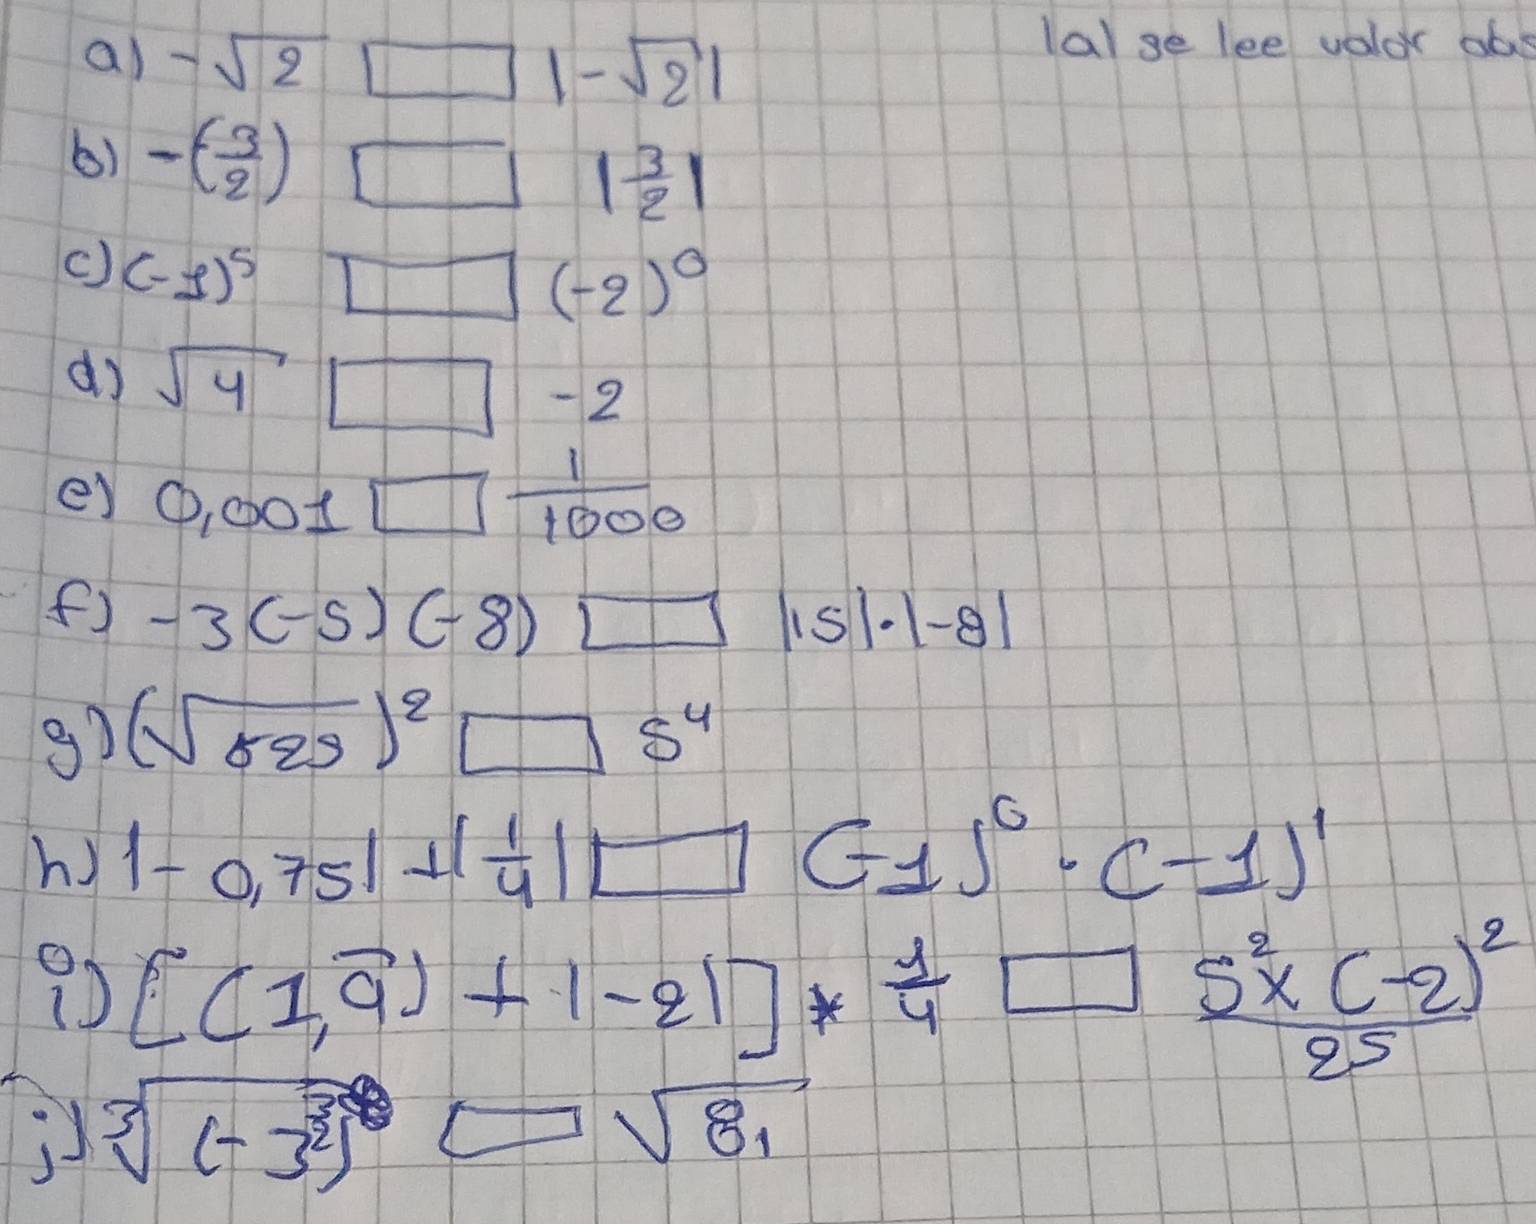 |a| se lee valor abs
a) -√2 □ |-√2|
b) -(3/2) □ |3/2|
c) (-1)⁵ □ (-2)⁰
d) √4 □ -2
e) 0,001 □ 1/1000
f) -3(-5)(-8) □ |15|·|-8|
g) (√625)² □ 5⁴
h) |-0,75| + |1/4| □ (-1)⁰ · (-1)¹
i) [(1,9̅) + |-2|] * 1/4 □ 5² x (-2)² / 25
j) ∛ □ √81